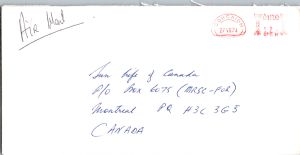 Air Mail
Sun Life of Canada
P/O Box 6075 (MRSC-PCR)
Montreal PQ H3C 3G5
CANADA